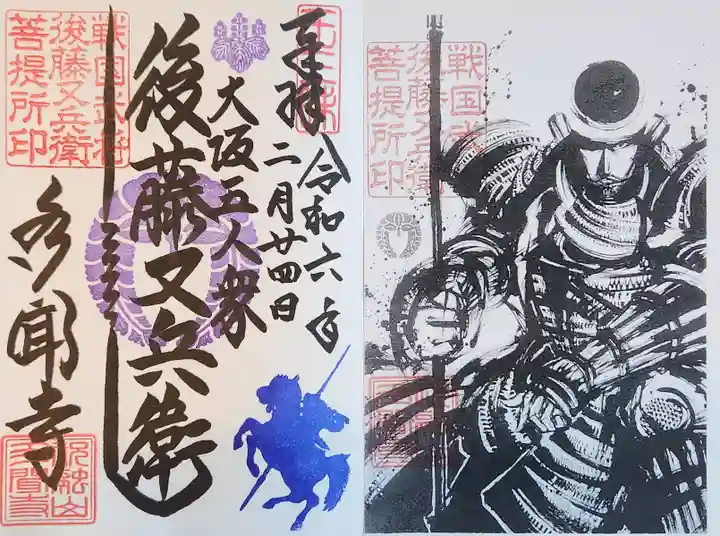 奉拝
令和六年
二月廿四日
大阪五人衆
後藤又兵衛
戦国武将
後藤又兵衛
菩提所印
多聞寺
祝融山
戦国武将
後藤又兵衛
菩提所印